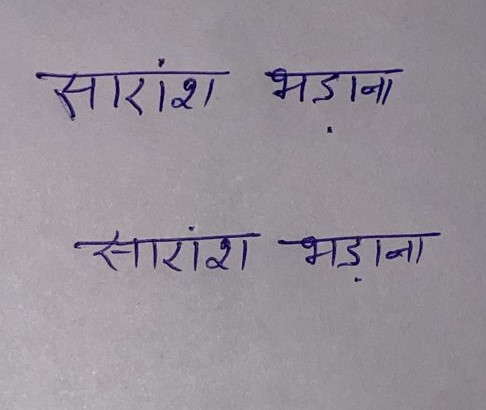 सारांश भड़ाना
सारांश भड़ाना